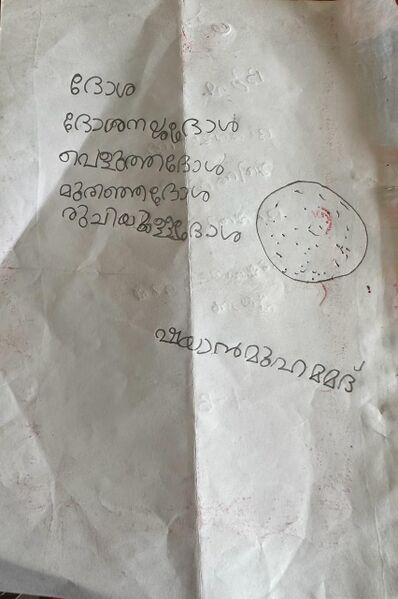 ദോശ
ദോശനല്ലദോശ
വെളുത്തദോശ
മുരിഞ്ഞദോശ
രുചിയുള്ളദോശ
ഷയാൻമുഹമമദ്